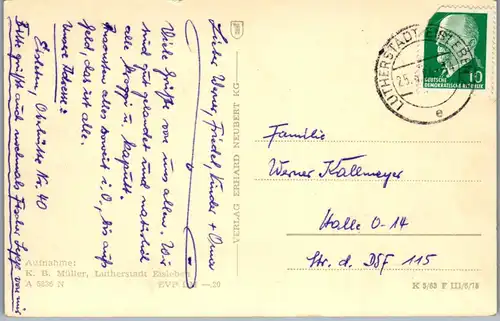 Liebe Werner, Friedel, Kinder + Oma
Viele Grüße von uns allen. Wir
sind gut gelandet und natürlich
alle froggi u. kaputt.
Ansonsten alles soweit i.O., bis aufs
Geld, das ist alle.
Unsere Adresse:
Eisleben, Obere Nr. 40
Bitte grüßt auch nochmals Fischer von mir
Aufnahme:
K. B. Müller, Lutherstadt Eisleben
A 5836 N EVP DM -,20
VERLAG ERHARD NEUBERT KG
LUTHERSTADT EISLEBEN
25.
e
DEUTSCHE
DEMOKRATISCHE REPUBLIK
10
Familie
Werner Kallmeyer
Halle 0-14
Str. d. DSF 115
K 5/63 F III/6/18